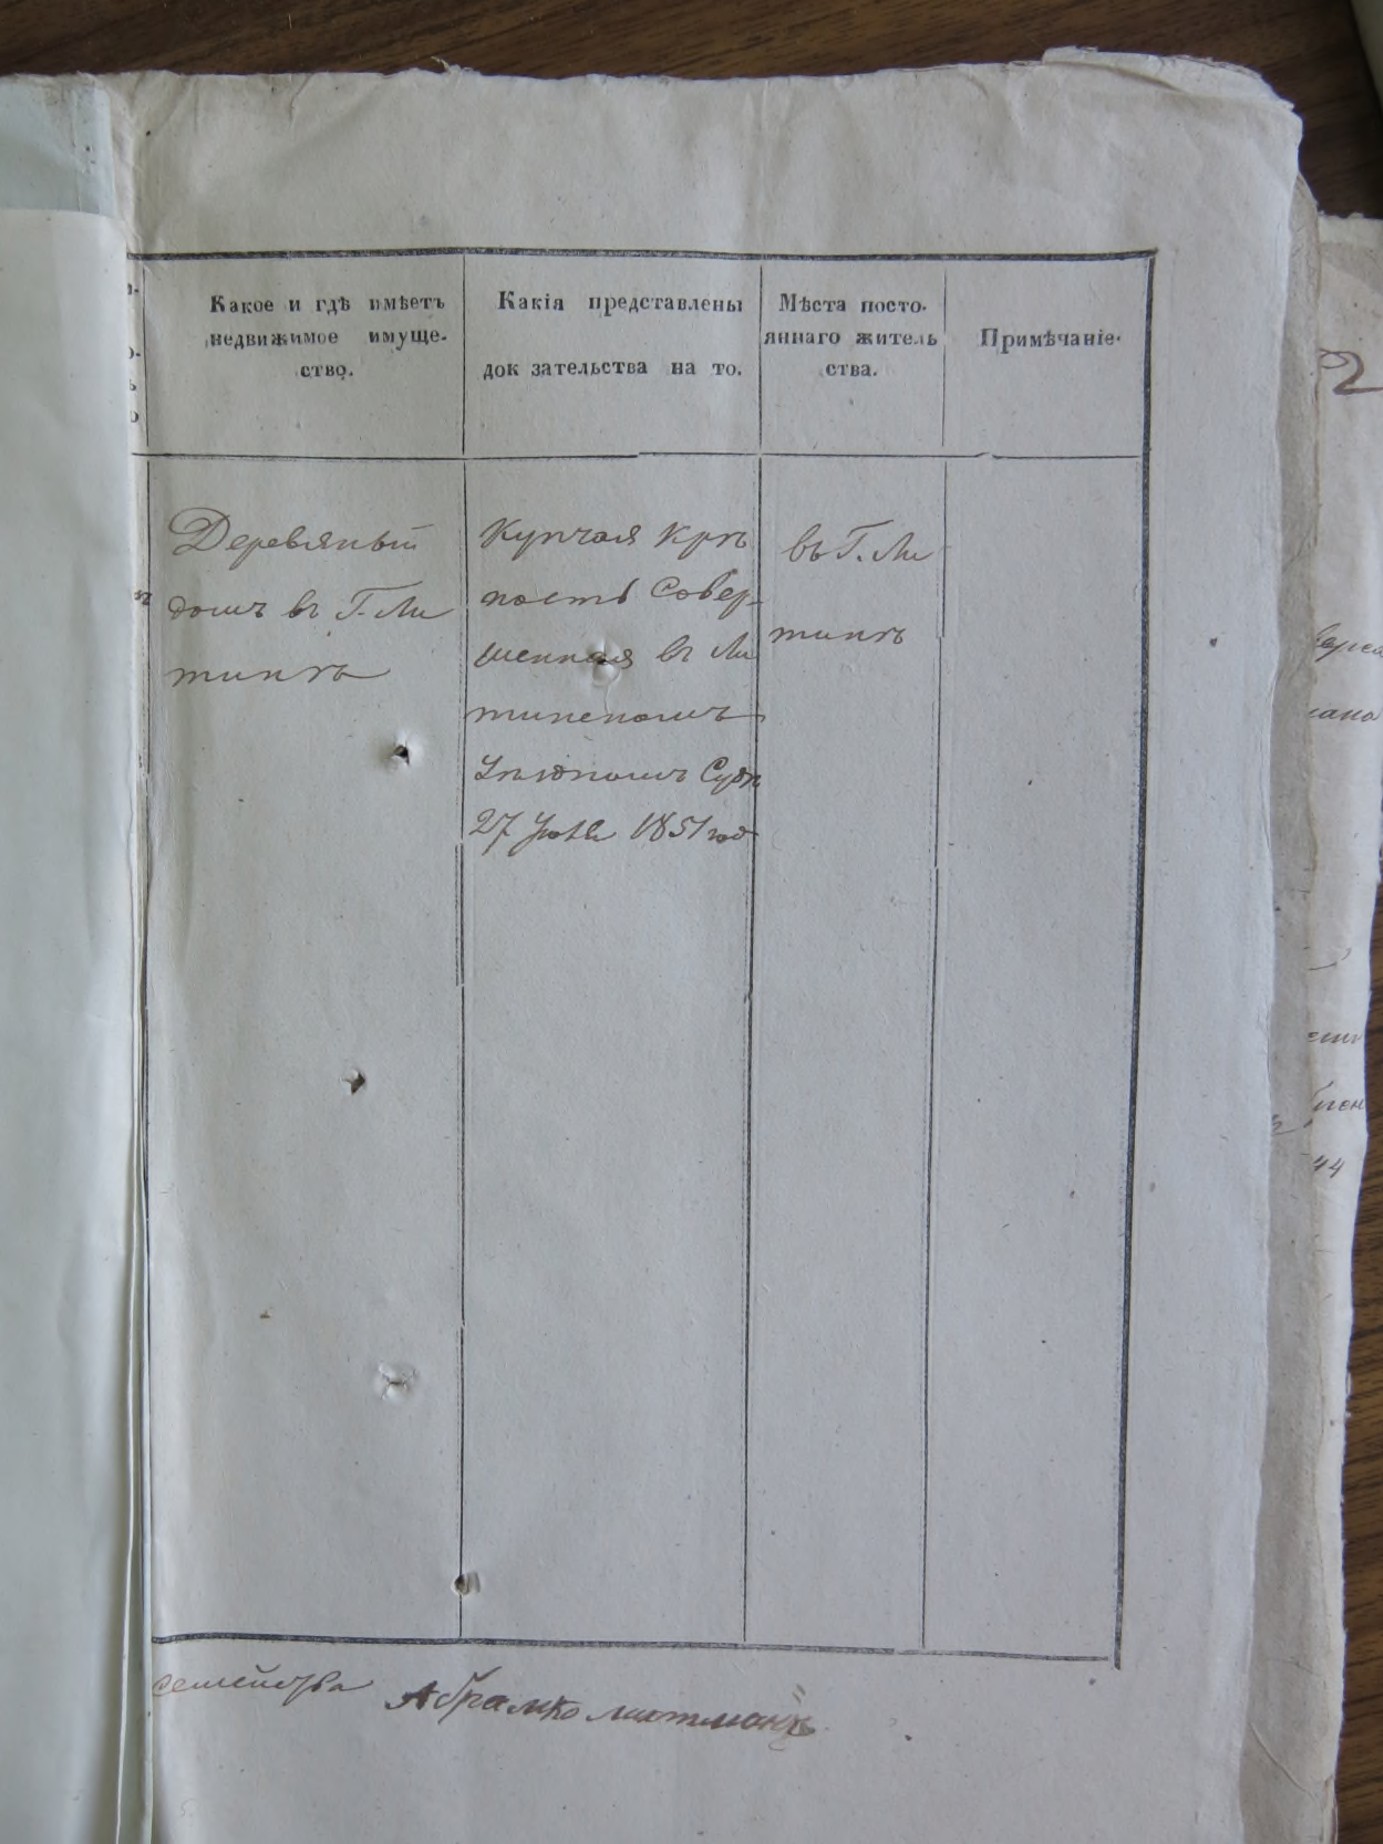 Какое и гдѣ имѣетъ
недвижимое имуще-
ство.
Какія представлены
док зательства на то.
Мѣста посто-
яннаго житель
ства.
Примѣчаніе.
Деревяный
домъ въ Г. Ли
тинѣ
Купчая Крѣ
пость Совер-
шенная въ Ли
тинскомъ
Уѣздномъ Судѣ
27 Іюля 1851 год
въ Г. Ли
тинѣ
семейства
Абрамко лихтманъ
44